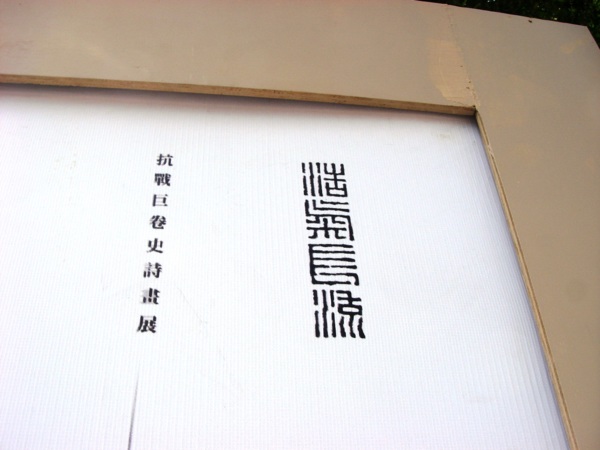 浩氣長流
抗戰巨卷史詩畫展